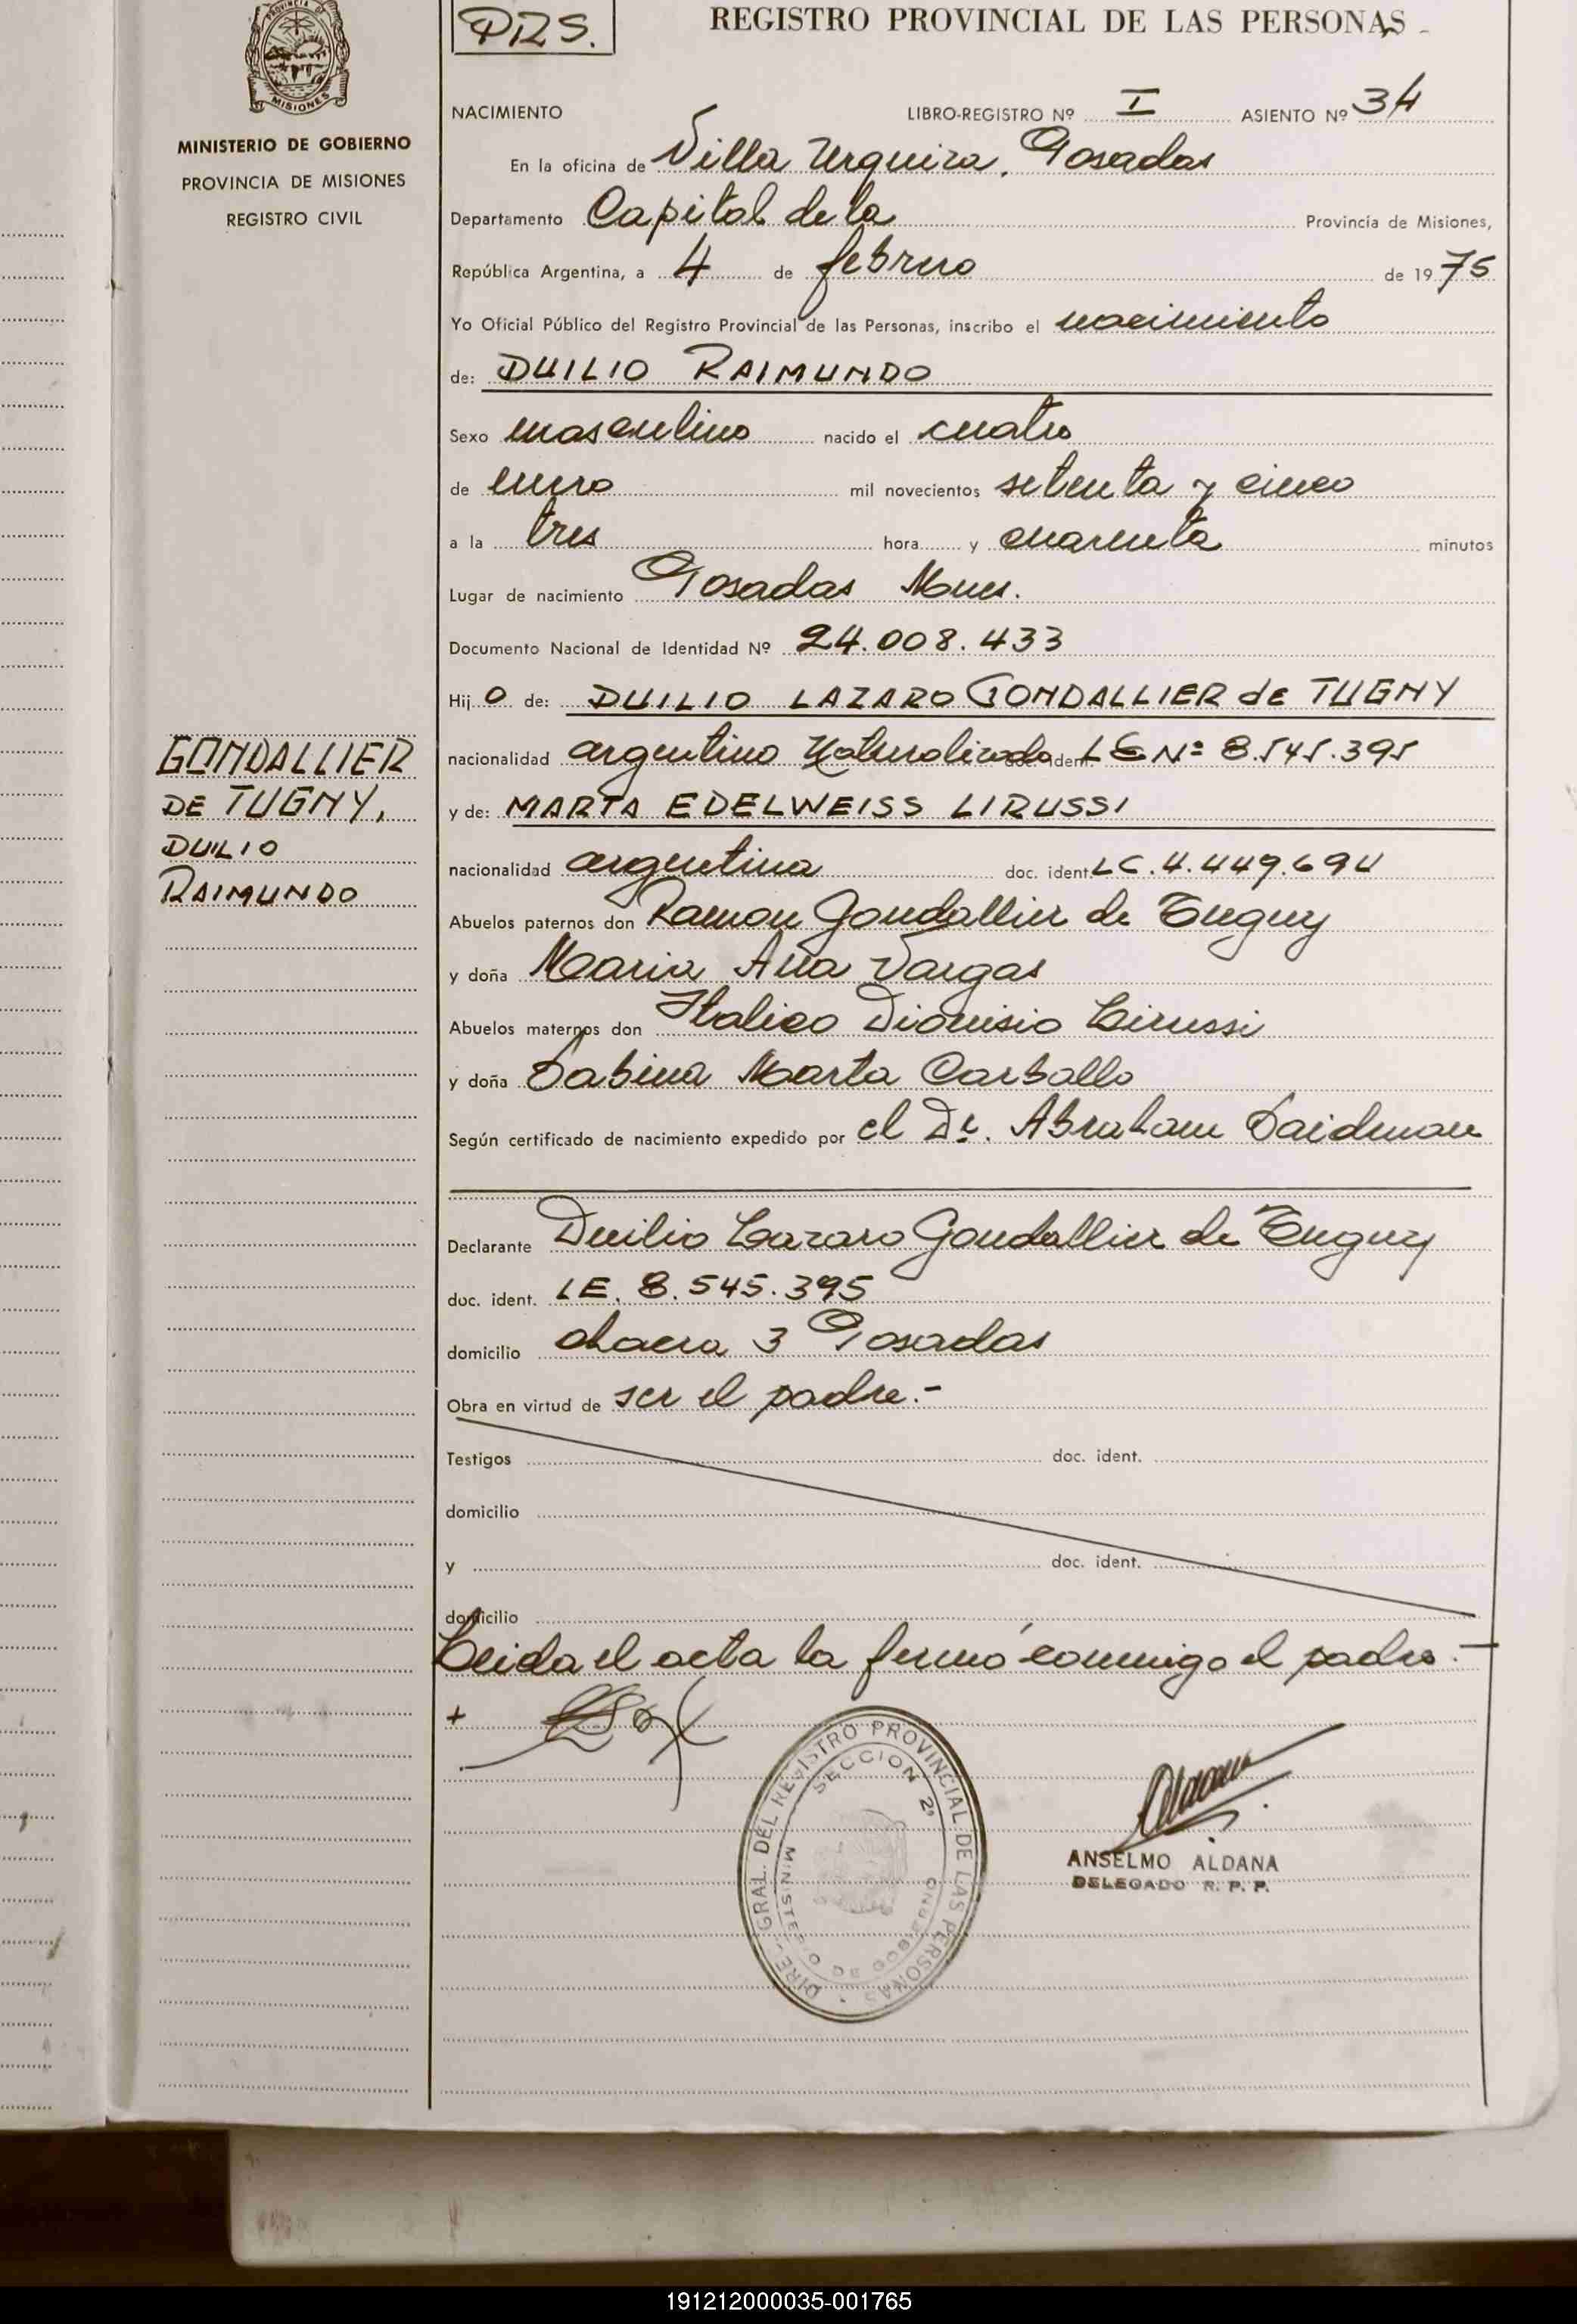 PROVINCIA DE
MISIONES
MINISTERIO DE GOBIERNO
PROVINCIA DE MISIONES
REGISTRO CIVIL
GONDALLIER
DE TUGNY,
DUILIO
RAIMUNDO
REGISTRO PROVINCIAL DE LAS PERSONAS
NACIMIENTO LIBRO-REGISTRO Nº I ASIENTO Nº 34
En la oficina de Villa Urquiza, Posadas
Departamento Capital de la Provincia de Misiones,
República Argentina, a 4 de febrero de 1975
Yo Oficial Público del Registro Provincial de las Personas, inscribo el nacimiento
de: DUILIO RAIMUNDO
Sexo masculino nacido el cuatro
de enero mil novecientos setenta y cinco
a la tres hora y cuarenta minutos
Lugar de nacimiento Posadas Mnes.
Documento Nacional de Identidad Nº 24.008.433
Hijo de: DUILIO LAZARO GONDALLIER de TUGNY
nacionalidad argentino Naturalizado doc. ident LE Nº 8.545.395
y de: MARTA EDELWEISS LIRUSSI
nacionalidad argentina doc. ident LC.4.449.694
Abuelos paternos don Ramon Gondallier de Tugny
y doña Maria Ana Vargas
Abuelos maternos don Italico Dionisio Lirussi
y doña Sabina Marta Carballo
Según certificado de nacimiento expedido por el Dr. Abraham Saidman
Declarante Duilio Lazaro Gondallier de Tugny
doc. ident. LE. 8.545.395
domicilio chacra 3 Posadas
Obra en virtud de ser el padre.-
Testigos doc. ident.
domicilio
y doc. ident.
domicilio
Leida el acta la firmó conmigo el padre.-
DIRE. GRAL. DEL REGISTRO PROVINCIAL DE LAS PERSONAS
SECCION 2º
MINISTERIO DE GOBIERNO
ANSELMO ALDANA
DELEGADO R. P. P.
191212000035-001765